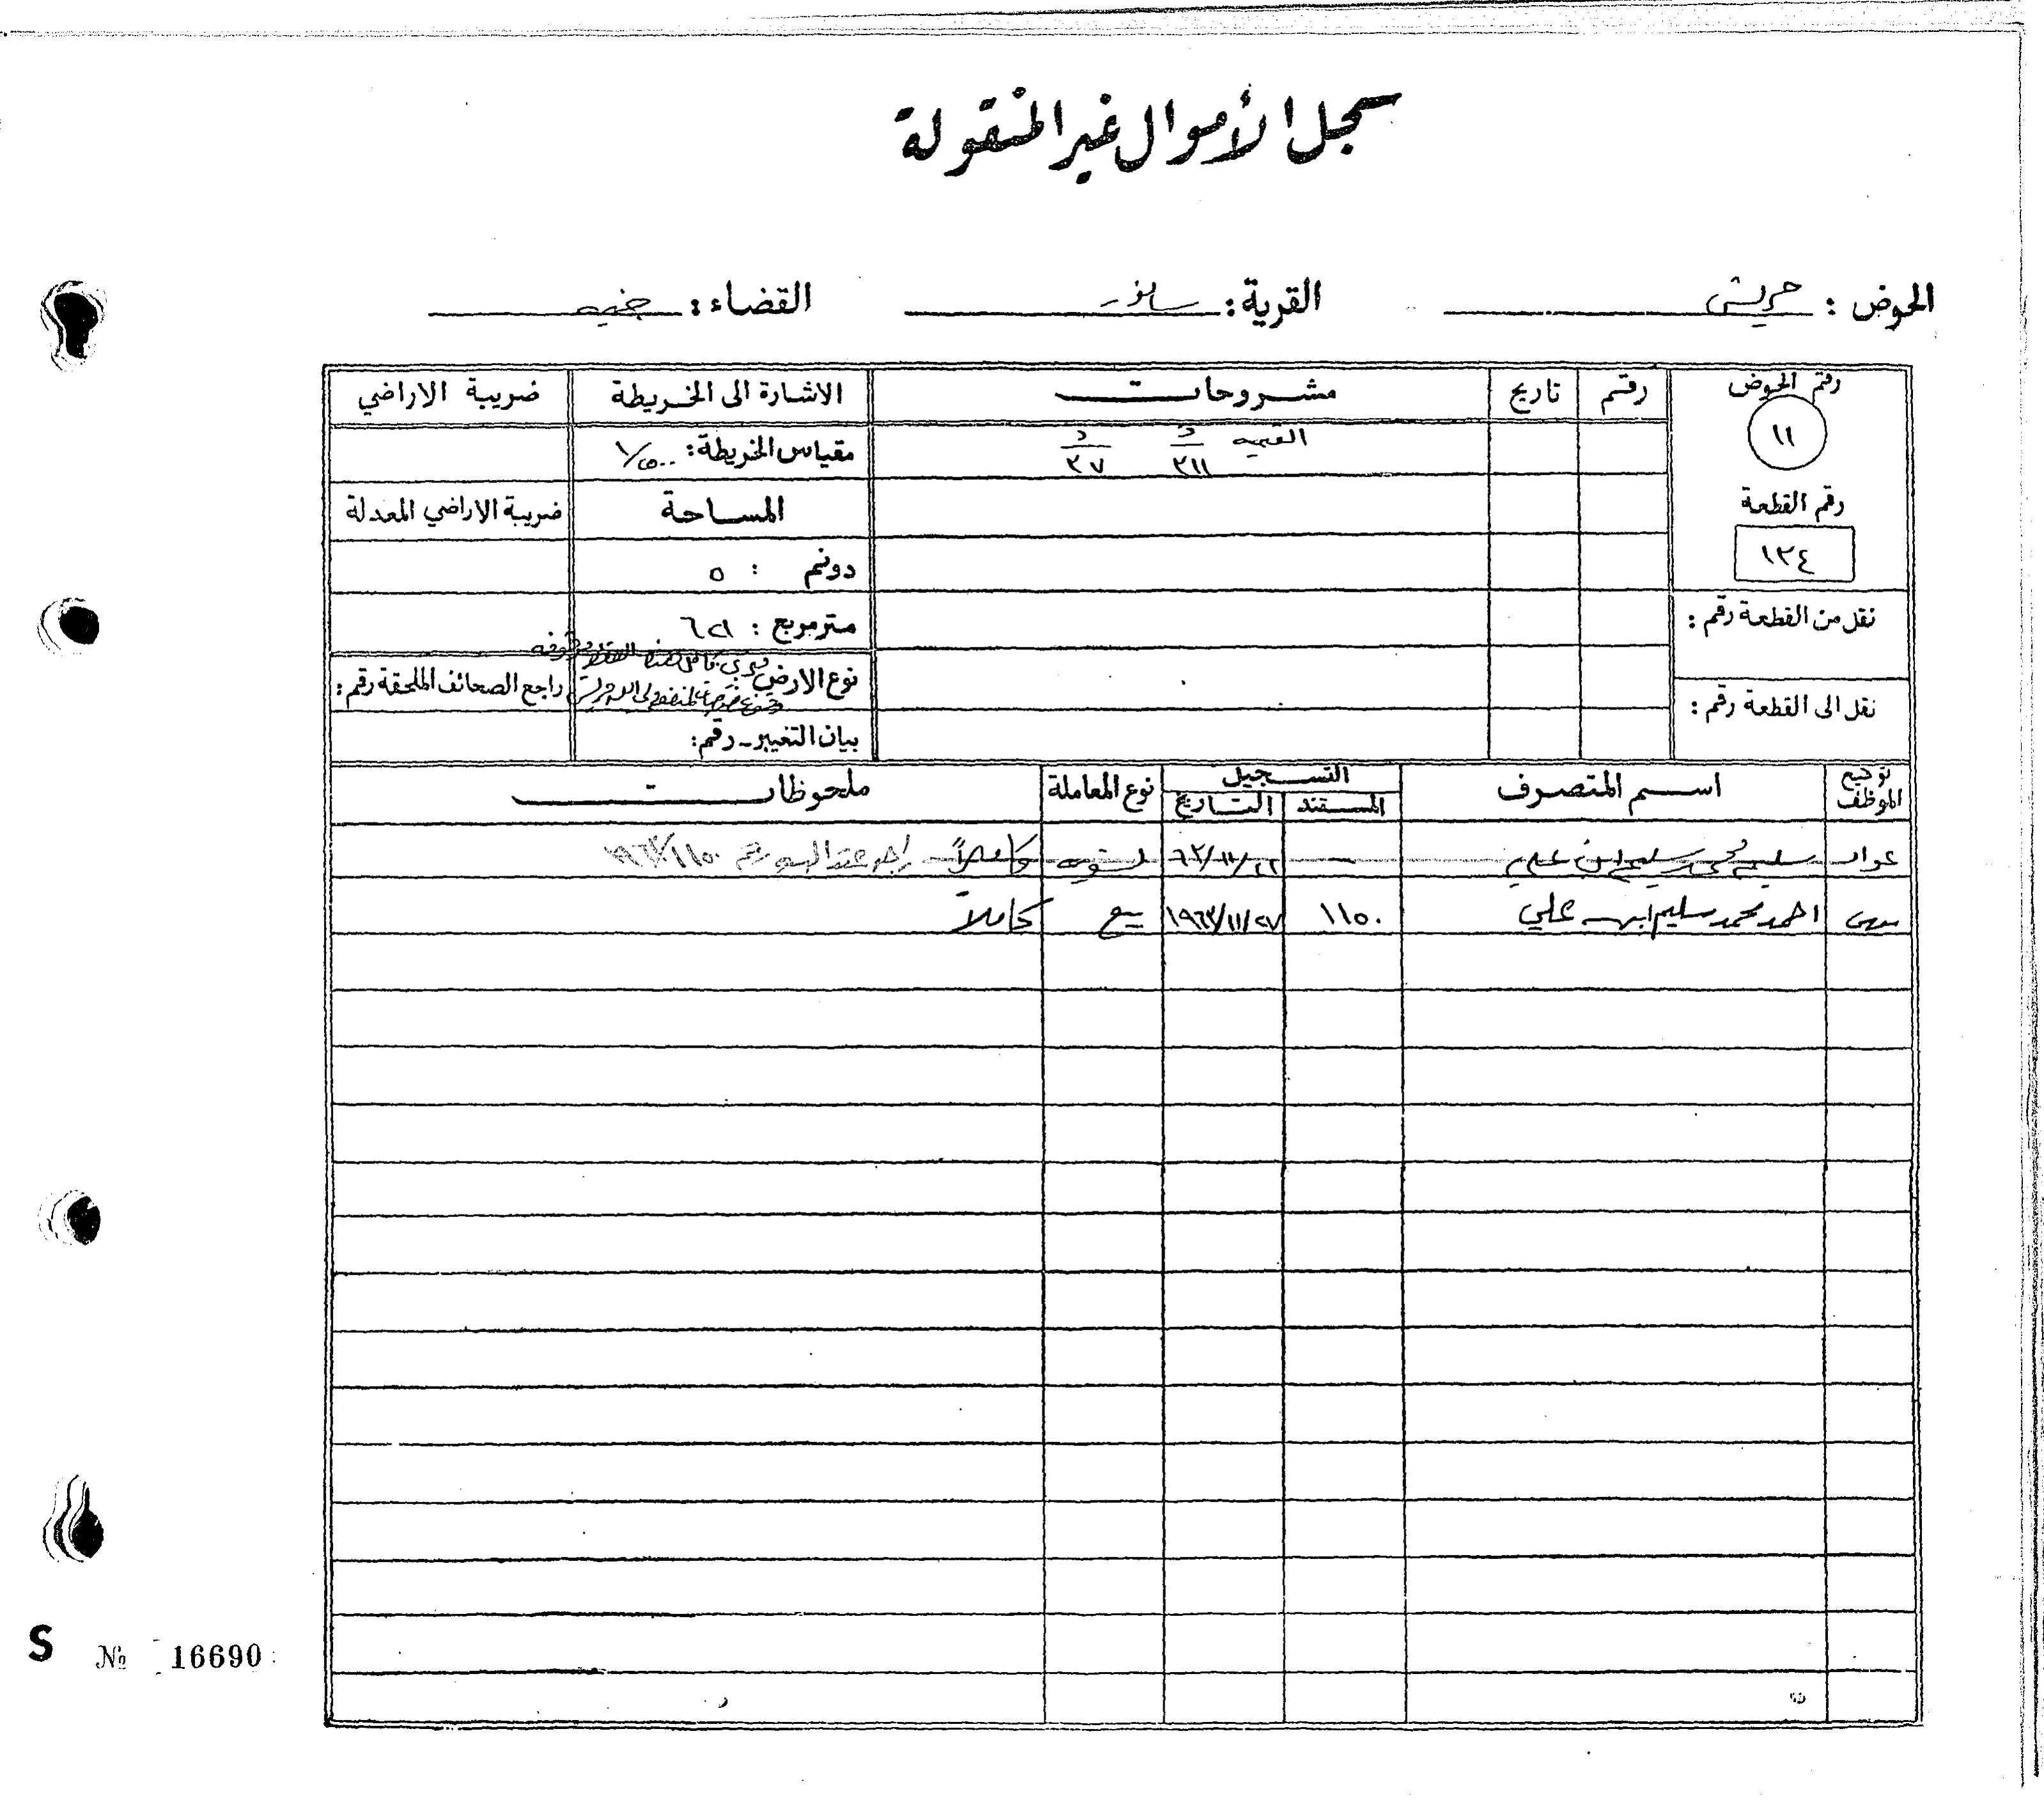 سجل الأموال غير المنقولة
الحوض : حريش القرية : سانور القضاء : جنين
رقم الحوض رقم تاريخ مشروحات الاشارة الى الخريطة ضريبة الاراضي
١١ القيمة د د مقياس الخريطة : ١/٢٥٠٠
٣١١ ٣٧
رقم القطعة المساحة ضريبة الاراضي المعدلة
١٣٤ دونم : ٥
نقل من القطعة رقم : متر مربع : ٦٢١
نوع الارض راجع الصحائف الملحقة رقم :
نقل الى القطعة رقم :
بيان التغيير - رقم :
توقيع الموظف اسم المتصرف التسجيل نوع المعاملة ملحوظات
المستند التاريخ
عواد سليم محمد سليم ابن علي — ٦٣/١١/٢٦ تسوية كاملاً راجع عقد البيع رقم ١١٥٠/٩٦٣
احمد محمد سليم ابن علي ١١٥٠ ١٩٦٣/١١/٢٧ بيع كاملاً
S № 16690